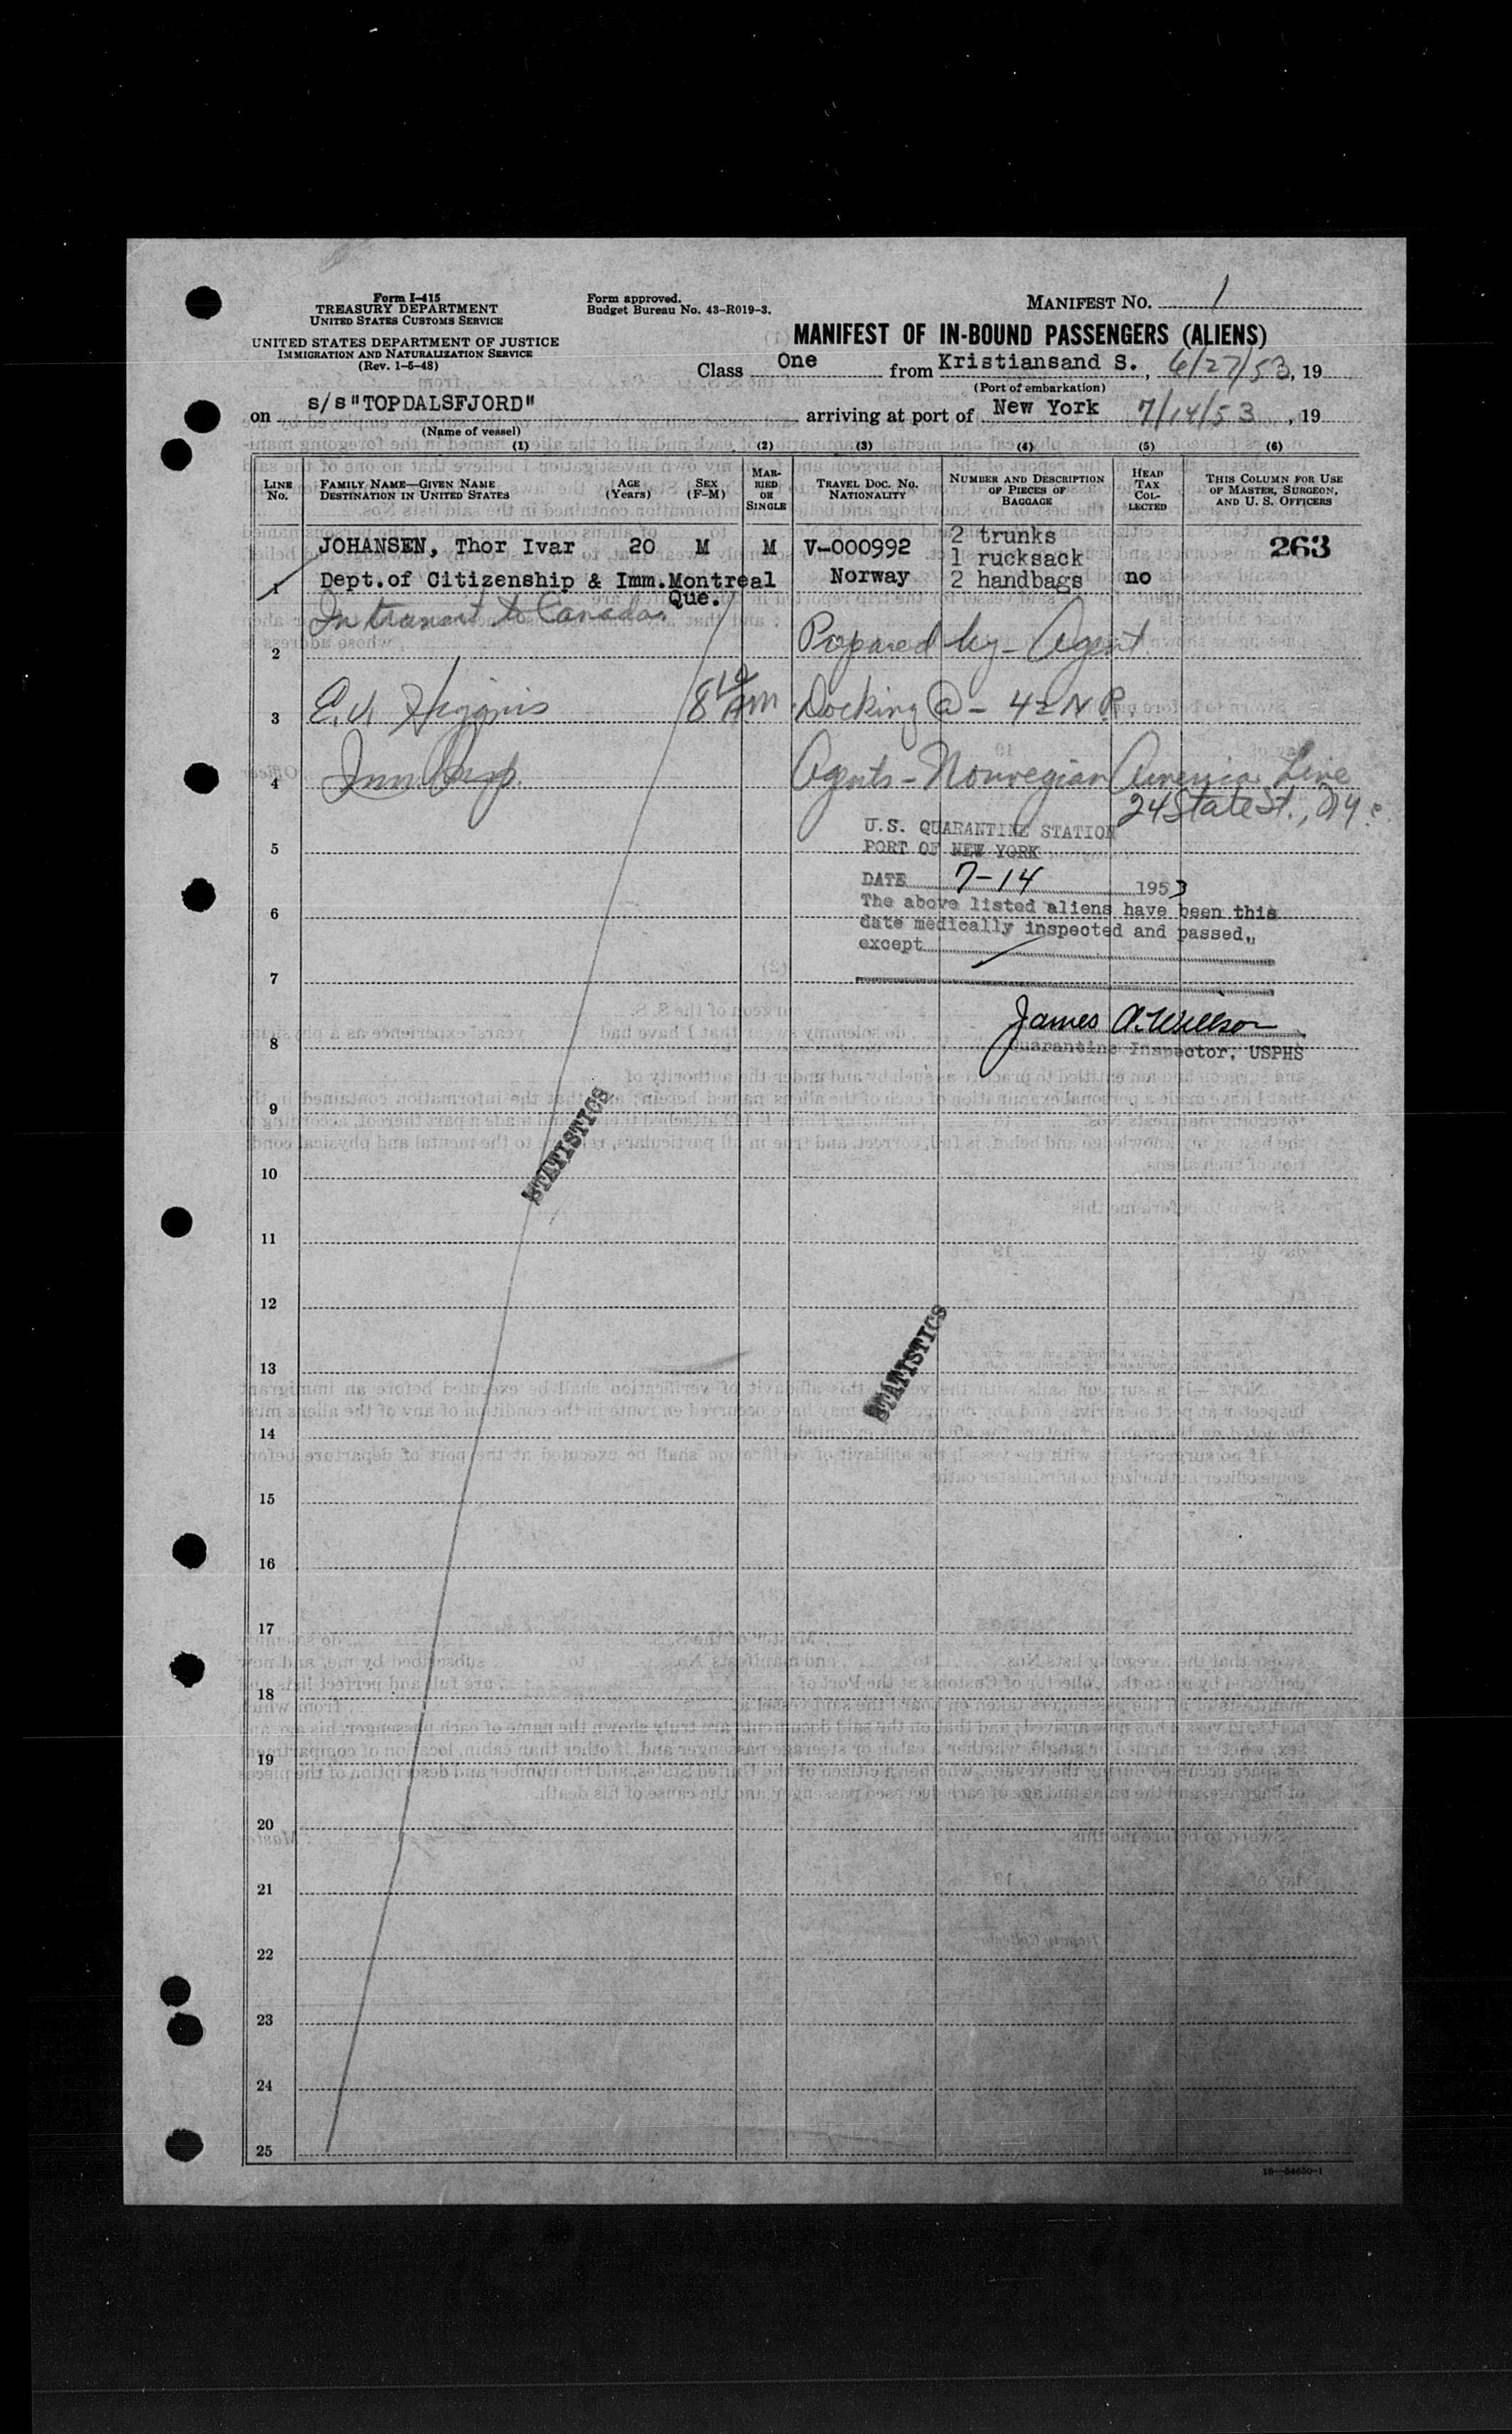 Form I-415
TREASURY DEPARTMENT
UNITED STATES CUSTOMS SERVICE
UNITED STATES DEPARTMENT OF JUSTICE
IMMIGRATION AND NATURALIZATION SERVICE
(Rev. 1-5-48)
Form approved.
Budget Bureau No. 43-R019-3.
MANIFEST NO. 1
MANIFEST OF IN-BOUND PASSENGERS (ALIENS)
Class One from Kristiansand S., 6/27/53, 19
(Port of embarkation)
on s/s "TOPDALSFJORD" arriving at port of New York 7/14/53, 19
(Name of vessel)
(1) (2) (3) (4) (5) (6)
LINE No.
FAMILY NAME—GIVEN NAME
DESTINATION IN UNITED STATES
AGE (Years)
SEX (F-M)
MARRIED OR SINGLE
TRAVEL DOC. NO.
NATIONALITY
NUMBER AND DESCRIPTION OF PIECES OF BAGGAGE
HEAD TAX COLLECTED
THIS COLUMN FOR USE OF MASTER, SURGEON, AND U. S. OFFICERS
JOHANSEN, Thor Ivar 20 M M V-000992 2 trunks 263
1 rucksack
1 Dept.of Citizenship & Imm.Montreal Norway 2 handbags no
Que.
In transit to Canada.
2 Prepared by - Agent
3 Higgins 8 AM Docking @ - 42 N.R.
4 Imm. Insp. Agents - Norwegian America Line
24 State St., NY
U.S. QUARANTINE STATION
5 PORT OF NEW YORK
DATE 7-14 1953
6 The above listed aliens have been this
date medically inspected and passed,
except
7
James A. Willson
8 Quarantine Inspector, USPHS
9
STATISTICS
10
11
12
STATISTICS
13
14
15
16
17
18
19
20
21
22
23
24
25